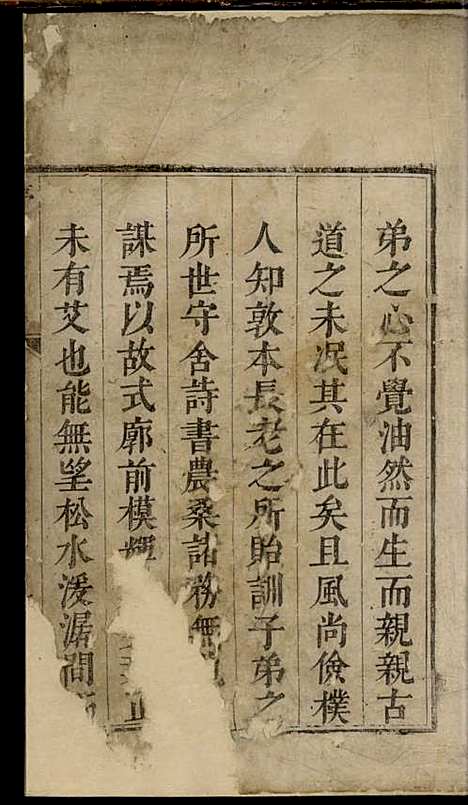 弟之心不覺油然而生而親親古
道之未泯其在此矣且風尚儉樸
人知敦本長老之所貽訓子弟之
所世守舍詩書農桑諸務無
謀焉以故式廓前模
未有艾也能無望松水湲潺間